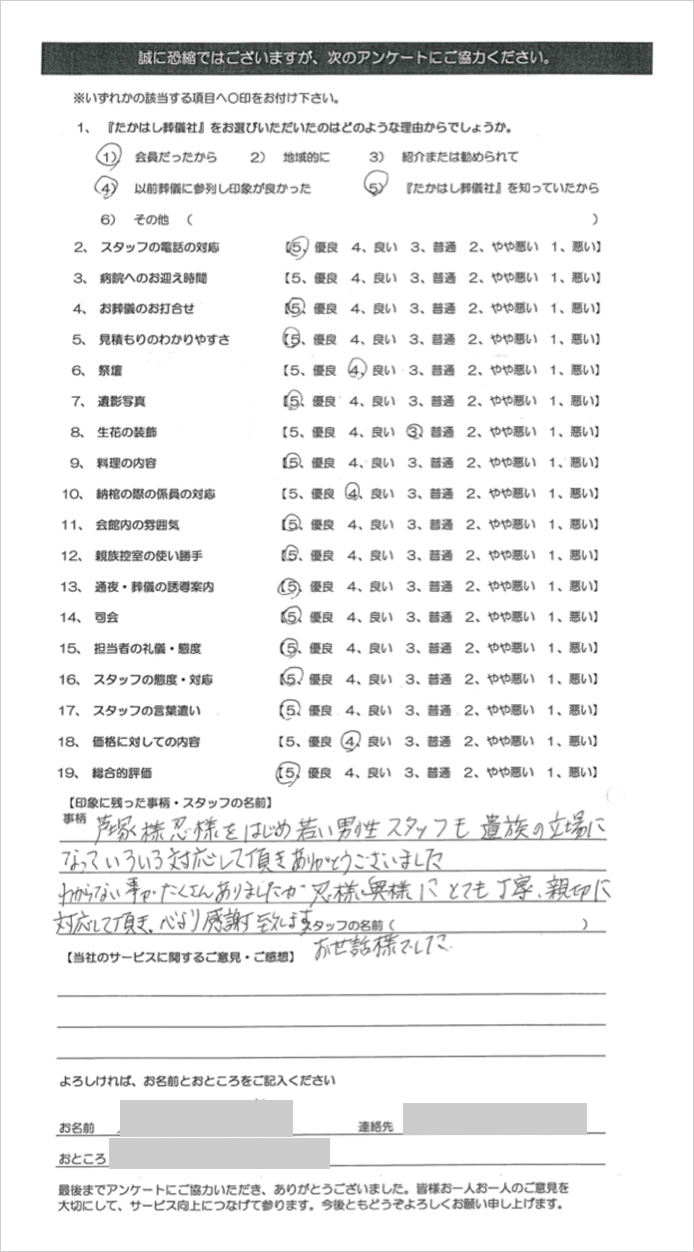 誠に恐縮ではございますが、次のアンケートにご協力ください。
※いずれかの該当する項目へ〇印をお付け下さい。
1、『たかはし葬儀社』をお選びいただいたのはどのような理由からでしょうか。
1） 会員だったから 2） 地域的に 3） 紹介または勧められて
4） 以前葬儀に参列し印象が良かった 5） 『たかはし葬儀社』を知っていたから
6） その他 （ ）
2、スタッフの電話の対応 【5、優良 4、良い 3、普通 2、やや悪い 1、悪い】
3、病院へのお迎え時間 【5、優良 4、良い 3、普通 2、やや悪い 1、悪い】
4、お葬儀のお打合せ 【5、優良 4、良い 3、普通 2、やや悪い 1、悪い】
5、見積もりのわかりやすさ 【5、優良 4、良い 3、普通 2、やや悪い 1、悪い】
6、祭壇 【5、優良 4、良い 3、普通 2、やや悪い 1、悪い】
7、遺影写真 【5、優良 4、良い 3、普通 2、やや悪い 1、悪い】
8、生花の装飾 【5、優良 4、良い 3、普通 2、やや悪い 1、悪い】
9、料理の内容 【5、優良 4、良い 3、普通 2、やや悪い 1、悪い】
10、納棺の際の係員の対応 【5、優良 4、良い 3、普通 2、やや悪い 1、悪い】
11、会館内の雰囲気 【5、優良 4、良い 3、普通 2、やや悪い 1、悪い】
12、親族控室の使い勝手 【5、優良 4、良い 3、普通 2、やや悪い 1、悪い】
13、通夜・葬儀の誘導案内 【5、優良 4、良い 3、普通 2、やや悪い 1、悪い】
14、司会 【5、優良 4、良い 3、普通 2、やや悪い 1、悪い】
15、担当者の礼儀・態度 【5、優良 4、良い 3、普通 2、やや悪い 1、悪い】
16、スタッフの態度・対応 【5、優良 4、良い 3、普通 2、やや悪い 1、悪い】
17、スタッフの言葉遣い 【5、優良 4、良い 3、普通 2、やや悪い 1、悪い】
18、価格に対しての内容 【5、優良 4、良い 3、普通 2、やや悪い 1、悪い】
19、総合的評価 【5、優良 4、良い 3、普通 2、やや悪い 1、悪い】
【印象に残った事柄・スタッフの名前】
事柄 芦塚様忍様をはじめ若い男性スタッフも遺族の立場に
なっていろいろ対応して頂きありがとうございました
わからない事がたくさんありましたが忍様、奥様にとても丁寧、親切に
対応して頂き、心より感謝致します スタッフの名前（ ）
お世話様でした
【当社のサービスに関するご意見・ご感想】
よろしければ、お名前とおところをご記入ください
お名前 連絡先
おところ
最後までアンケートにご協力いただき、ありがとうございました。皆様お一人お一人のご意見を
大切にして、サービス向上につなげて参ります。今後ともどうぞよろしくお願い申し上げます。